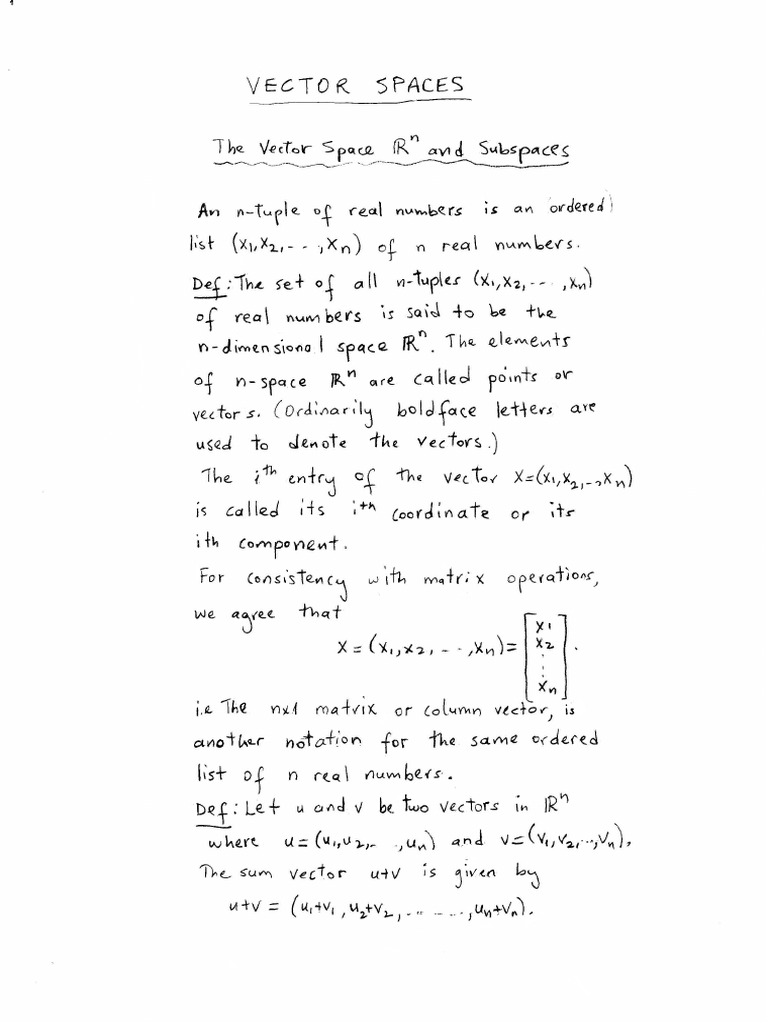 1
VECTOR SPACES
The Vector Space ℝⁿ and Subspaces
An n-tuple of real numbers is an ordered
list (x₁,x₂,--·,xₙ) of n real numbers.
Def: The set of all n-tuples (x₁,x₂,--··,xₙ)
of real numbers is said to be the
n-dimensional space ℝⁿ. The elements
of n-space ℝⁿ are called points or
vectors. (Ordinarily boldface letters are
used to denote the vectors.)
The iᵗʰ entry of the vector x=(x₁,x₂,--,xₙ)
is called its iᵗʰ coordinate or its
ith component.
For consistency with matrix operations,
we agree that
x = (x₁,x₂,--·,xₙ) = [x₁ x₂ ⋮ xₙ].
i.e The nx1 matrix or column vector, is
another notation for the same ordered
list of n real numbers.
Def: Let u and v be two vectors in ℝⁿ
where u=(u₁,u₂,-·,uₙ) and v=(v₁,v₂,··,vₙ).
The sum vector u+v is given by
u+v = (u₁+v₁,u₂+v₂,........,uₙ+vₙ).